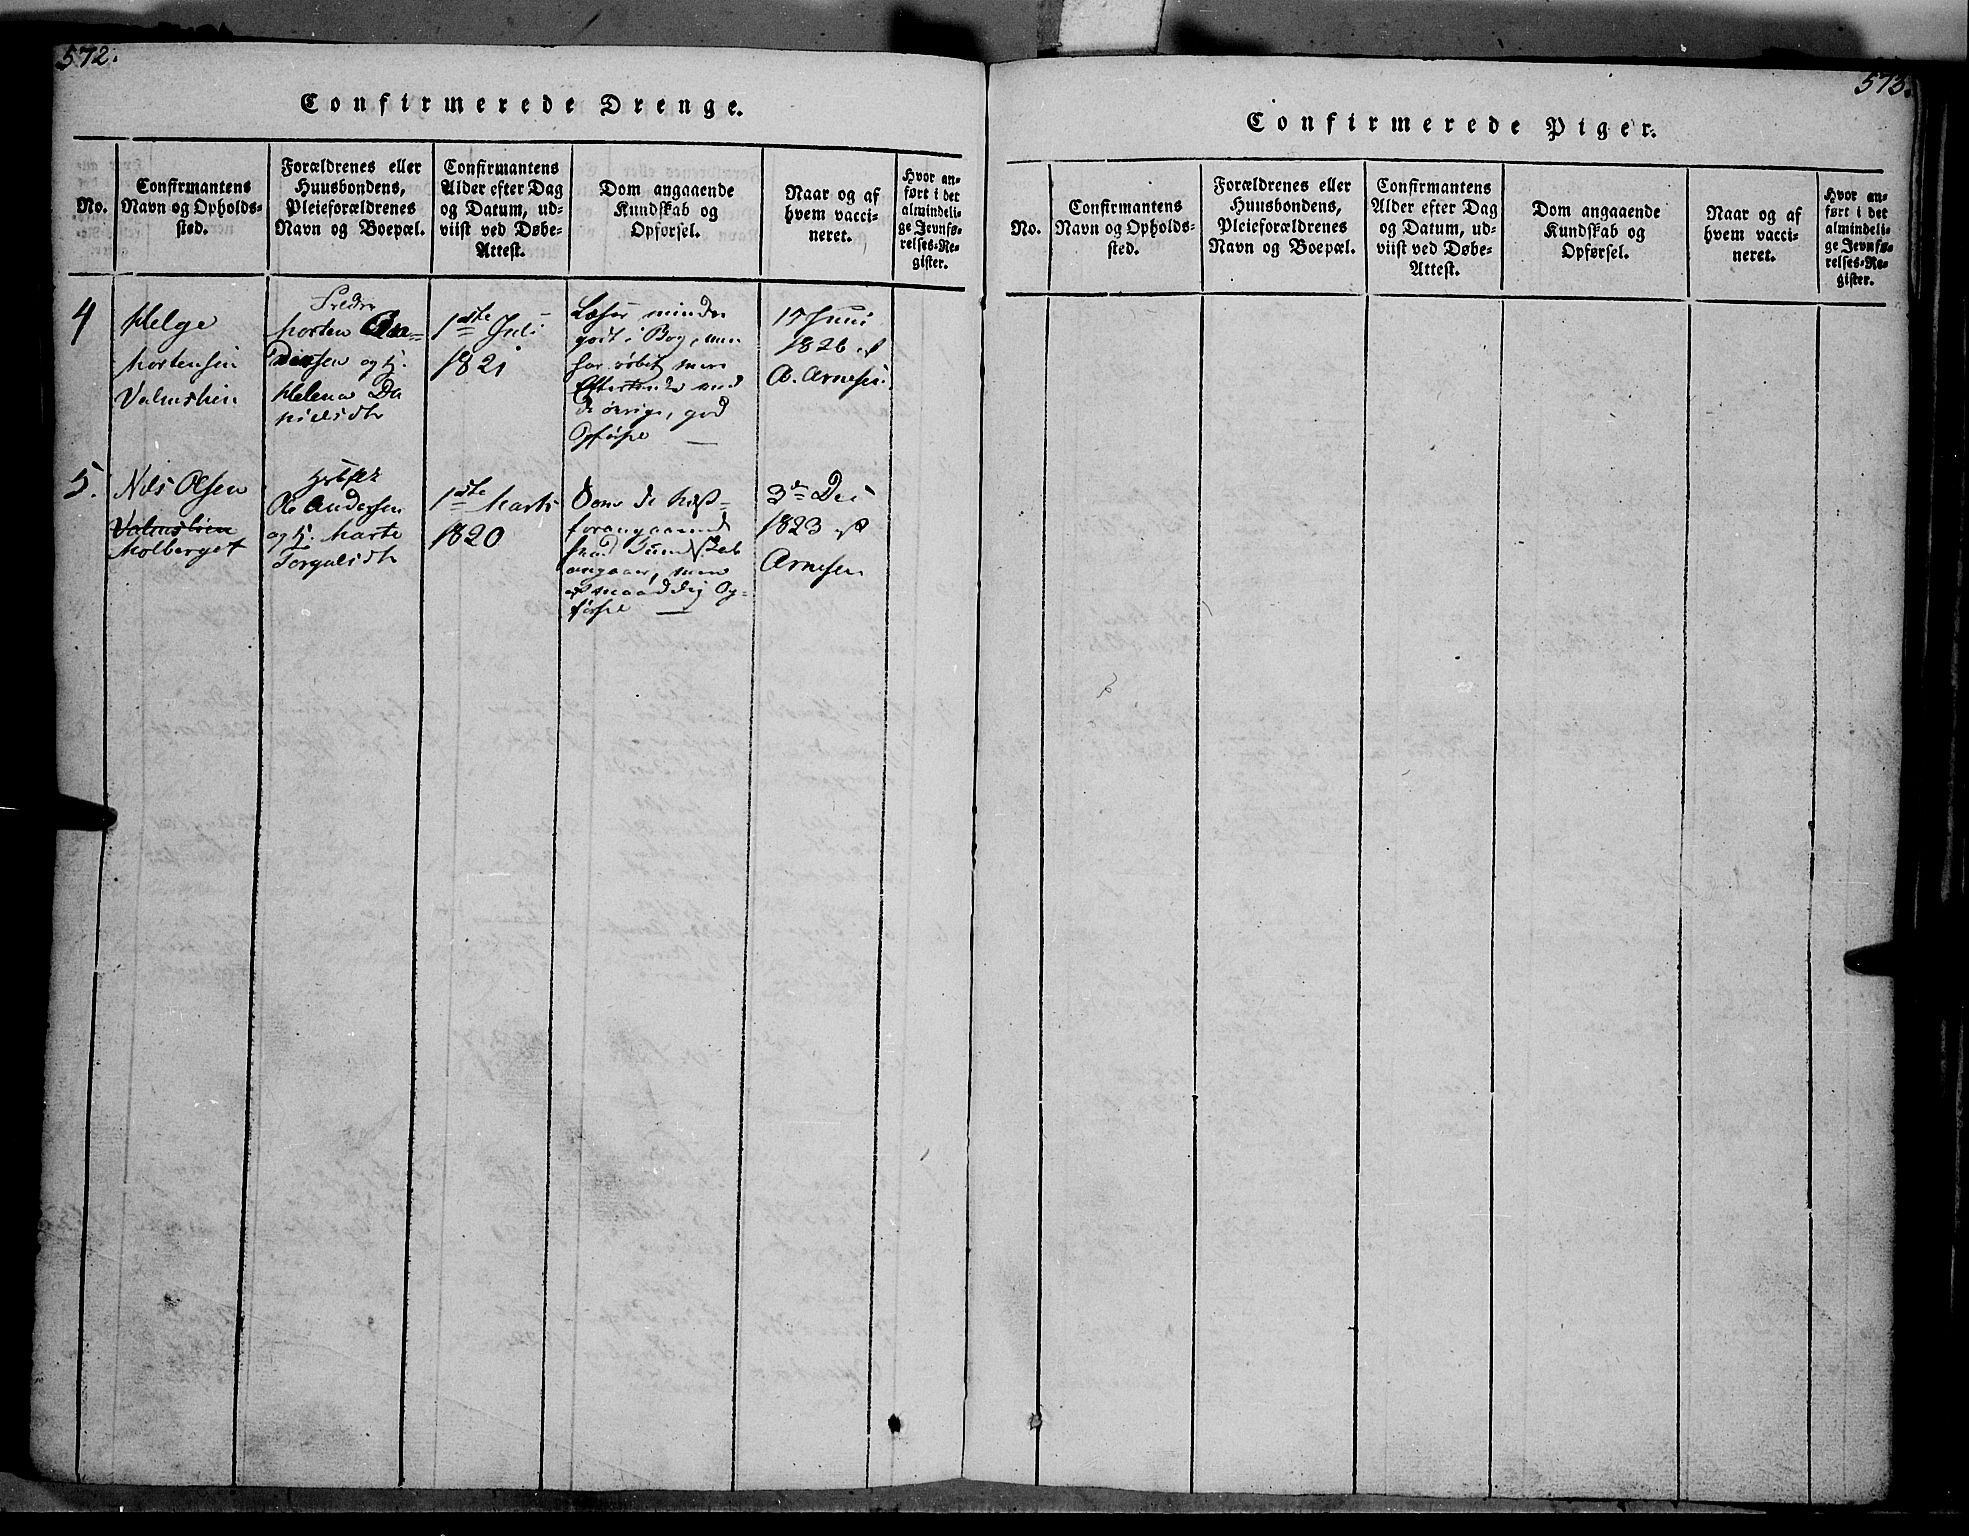 572.
Confirmerede Drenge.
No.
Confirmantens
Navn og Opholds-
sted.
Forældrenes eller
Huusbondens,
Pleieforældrenes
Navn og Boepæl.
Confirmantens
Alder efter Dag
og Datum, ud-
viist ved Døbe-
Attest.
Dom angaaende
Kundskab og
Opførsel.
Naar og af
hvem vacci-
neret.
Hvor an-
ført i det
almindeli-
ge Jevnfø-
relses-Re-
gister.
4
Helge
Mortensen
Valmslien
Morten
og Kj.
Helena Da
nielsdtr
1ste Juli
1821
Læser mindre
godt i Bog, men
har
med
de øvrige, god
Opførsel
15 Juni
1826 af
A. Arnesen
5.
Nils Olsen
Valmslien
Molberget
Ole Andersen
og Kj. Marte
1ste Marts
1820
Som de næst-
foregaaende
hvad Kundskab
angaaer, men
Op-
førsel
3de Dec
1823 af
Arnesen
573.
Confirmerede Piger.
No.
Confirmantens
Navn og Opholds-
sted.
Forældrenes eller
Huusbondens,
Pleieforældrenes
Navn og Boepæl.
Confirmantens
Alder efter Dag
og Datum, ud-
viist ved Døbe-
Attest.
Dom angaaende
Kundskab og
Opførsel.
Naar og af
hvem vacci-
neret.
Hvor an-
ført i det
almindeli-
ge Jevnfø-
relses-Re-
gister.